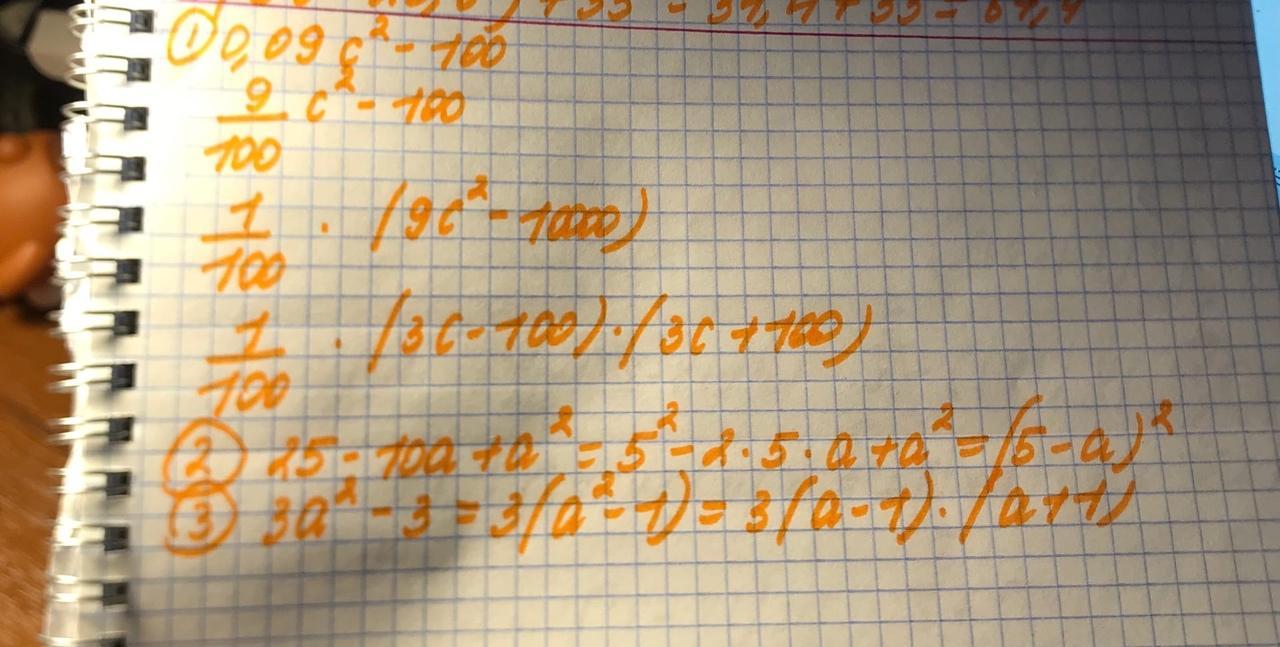 + 33 - 31,4 + 33 = 67,4
① 0,09 c² - 100
9/100 c² - 100
1/100 · (9c² - 10000)
1/100 · (3c - 100) · (3c + 100)
② 25 - 10a + a² = 5² - 2 · 5 · a + a² = (5 - a)²
③ 3a² - 3 = 3(a² - 1) = 3(a - 1) · (a + 1)